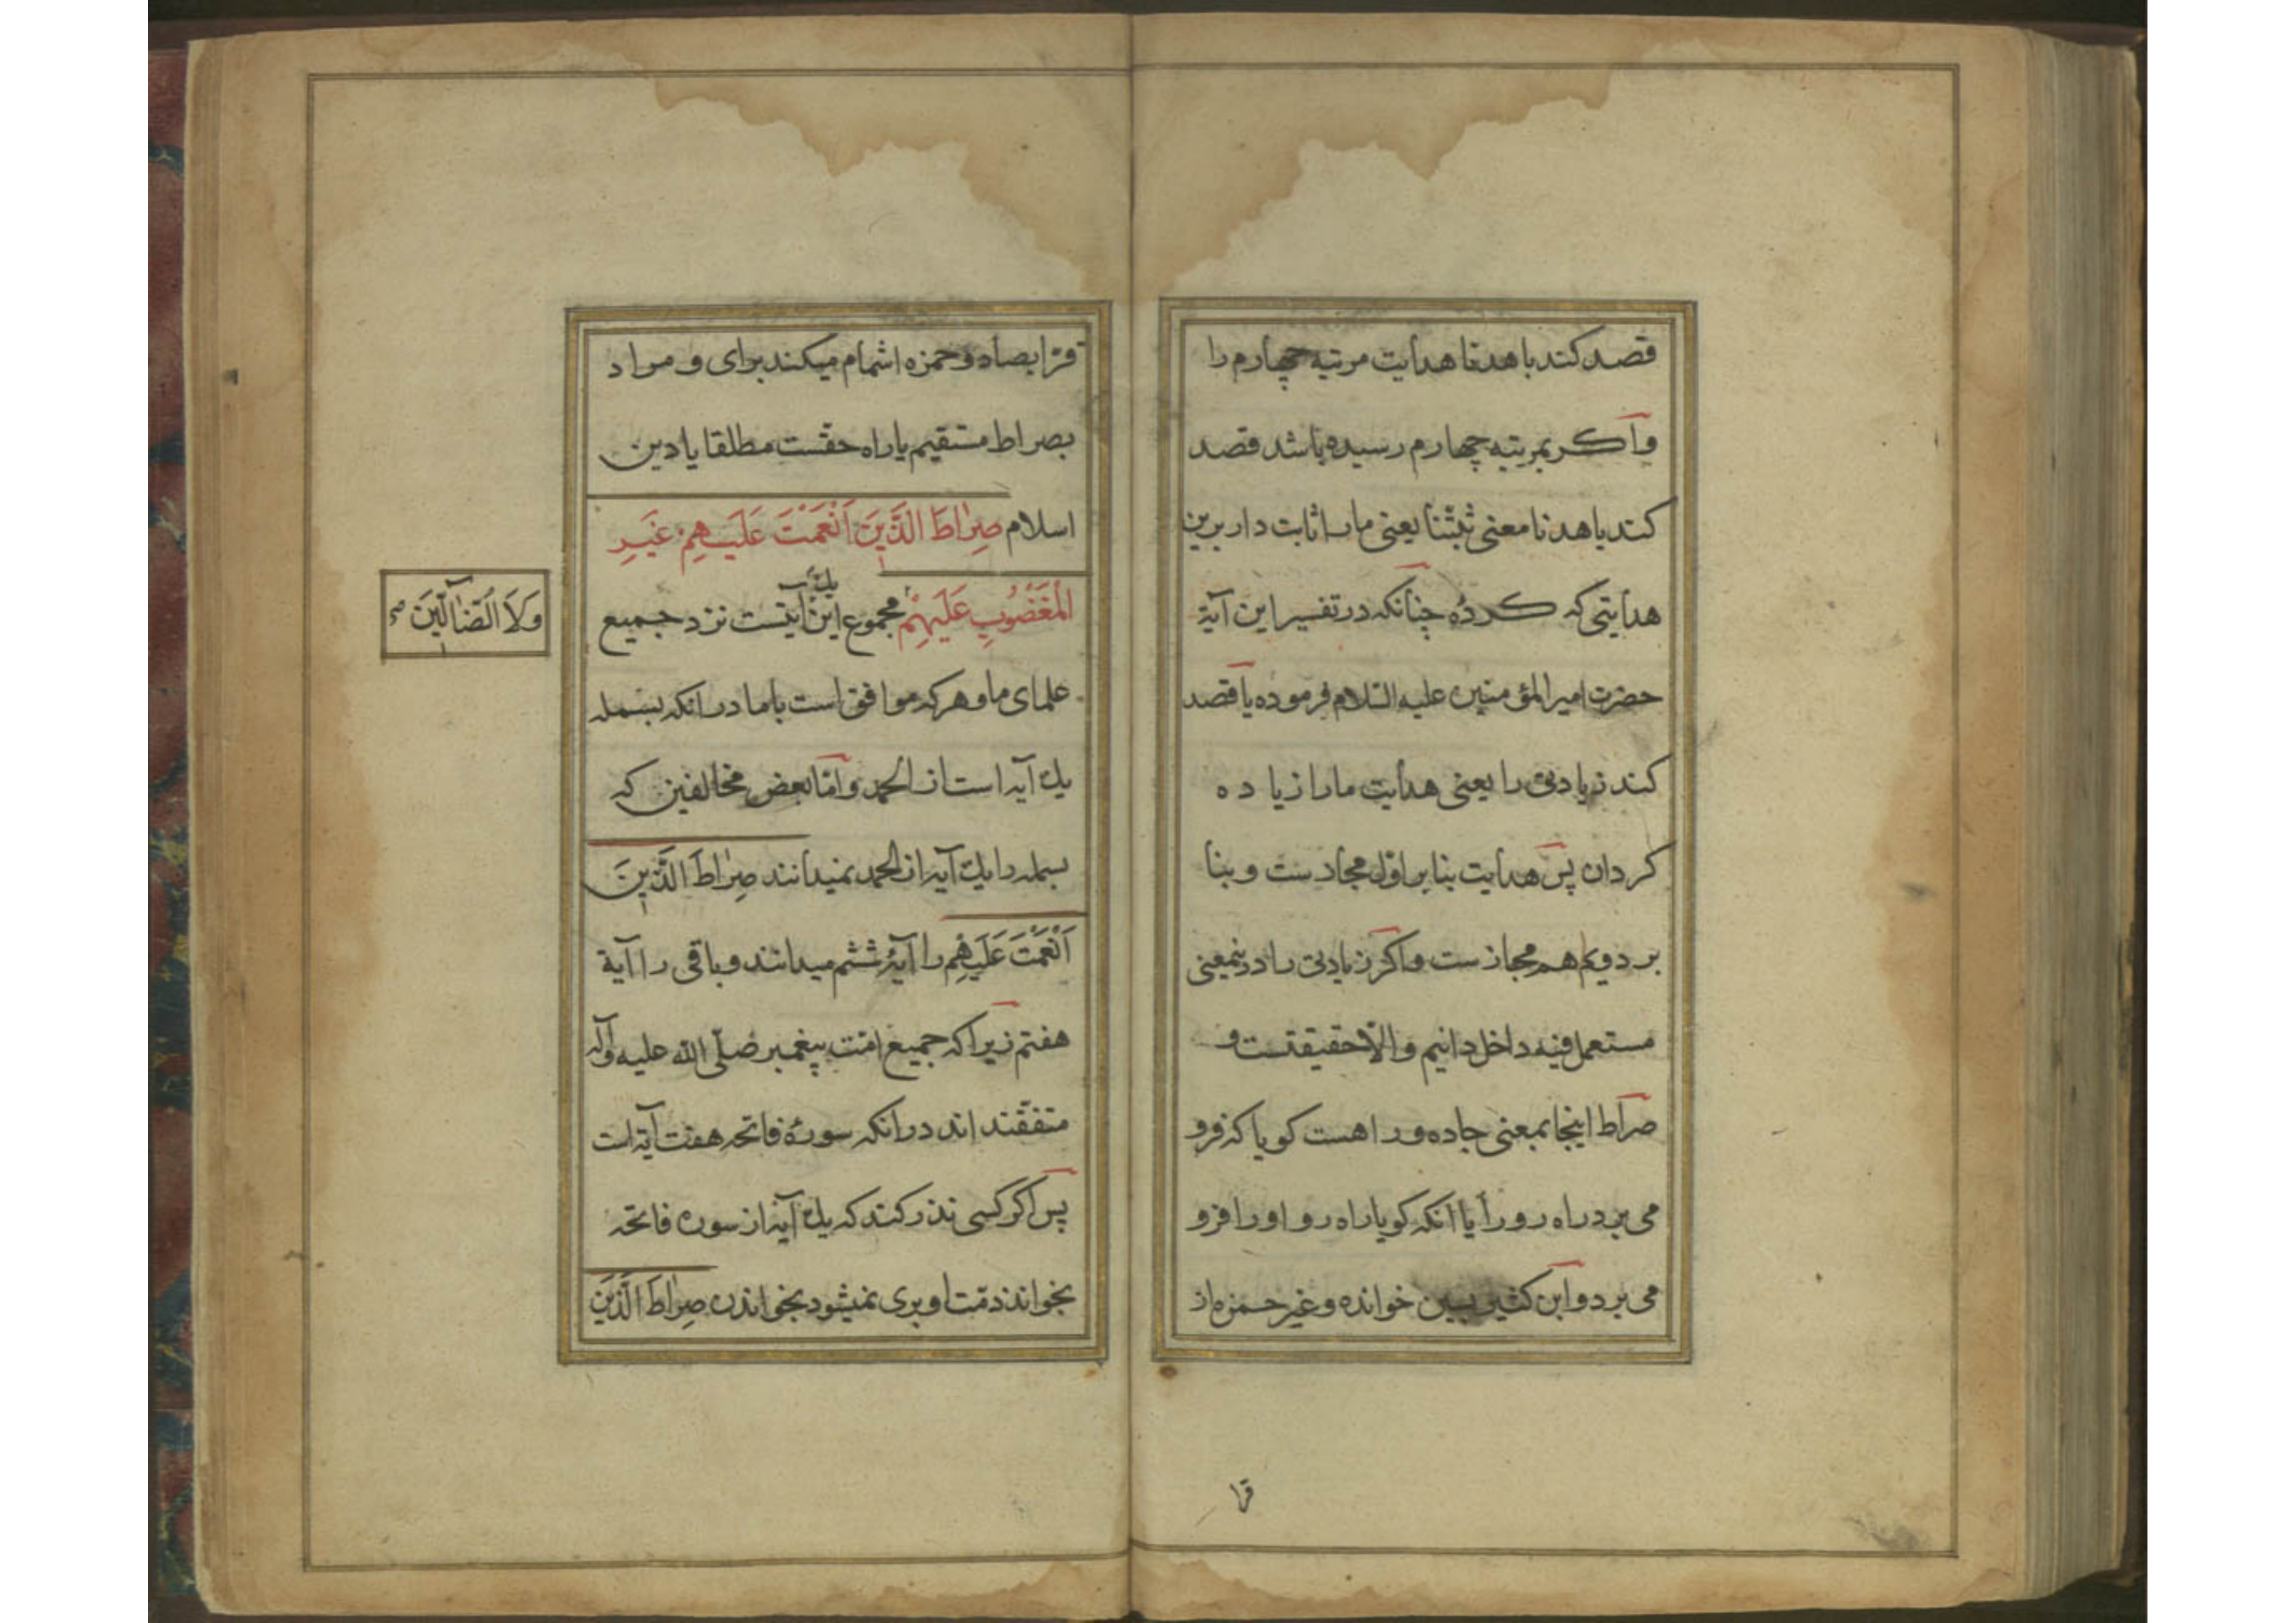 قصد کند باهدنا هدایت مرتبه چهارم را
واکر بمرتبه چهارم رسیده باشد قصد
کند باهدنا معنی ثبتنا یعنی ما را ثابت دار برین
هدایتی که کردهٔ چنانکه در تفسیر این آیة
حضرت امیر المؤمنین علیه السّلام فرموده یا قصد
کند زیادتی را یعنی هدایت ما را زیاده
کردان پس هدایت بنابر اوّل مجازست و بنا
بر دویم هم مجازست واکر زیادتی را درینمعنی
مستعمل فیه داخل دانیم والّا حقیقتست و
صراط اینجا بمعنی جاده و راهست کویا که فرو
می برد راه رو را یا آنکه کویا راه رو او را فرو
می برد و ابن کثیر بسین خوانده و غیر حمزه از
قرا
قرا بصاد و حمزه اشمام میکند بزای و مراد
بصراط مستقیم یا راه حقّست مطلقا یا دین
اسلام صِرٰاطَ الَّذَینَ اَنْعَمْتَ عَلَیهِمْ غَیرِ
الْمَغْضُوبِ عَلَیْهِمْ مجموع این یك آیتست نزد جمیع
وَلَا الضّٰالّینَ صح
علمای ما و هرکه موافق است باما درانکه بسمله
یك آیه است از الحمد وامّا بعض مخالفین که
بسمله را یك آیه از الحمد نمیدانند صِرٰاطَ الَّذینَ
اَنْعَمْتَ عَلَیهِمْ را آیهٔ ششم میدانند و باقی را آیة
هفتم زیرا که جمیع امّت پیغمبر صلّی الله علیه وآله
متفقند اند درانکه سورهٔ فاتحه هفت آیة است
پس اکر کسی نذر کند که یك آیه از سوره فاتحه
بخواند ذمّت او بری نمیشود بخواندن صِرٰاطَ الَّذینَ